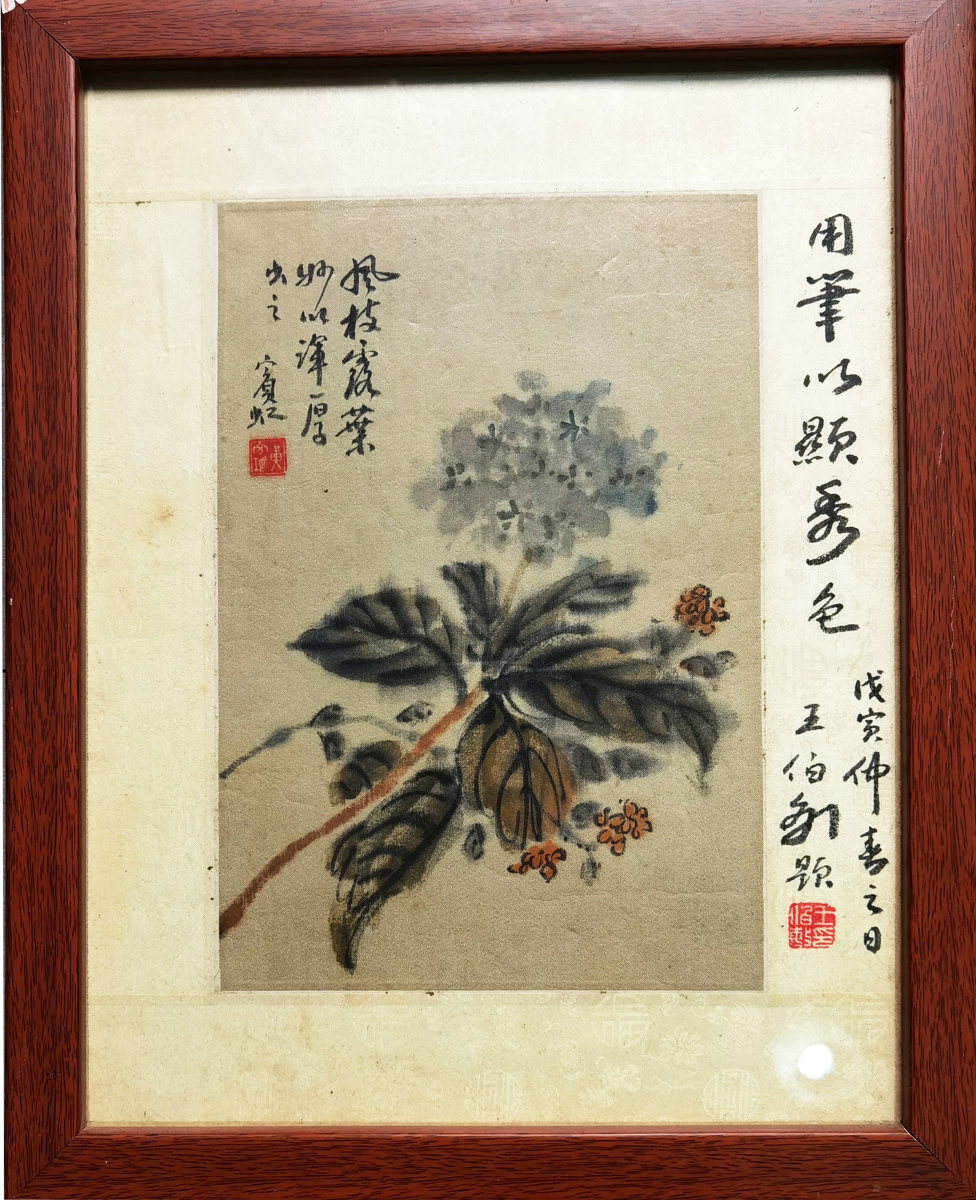 用筆以顯秀色
戊寅仲春之日
王伯敏題
王印伯敏
風枝露葉
妙以渾厚
出之 賓虹
黃賓虹